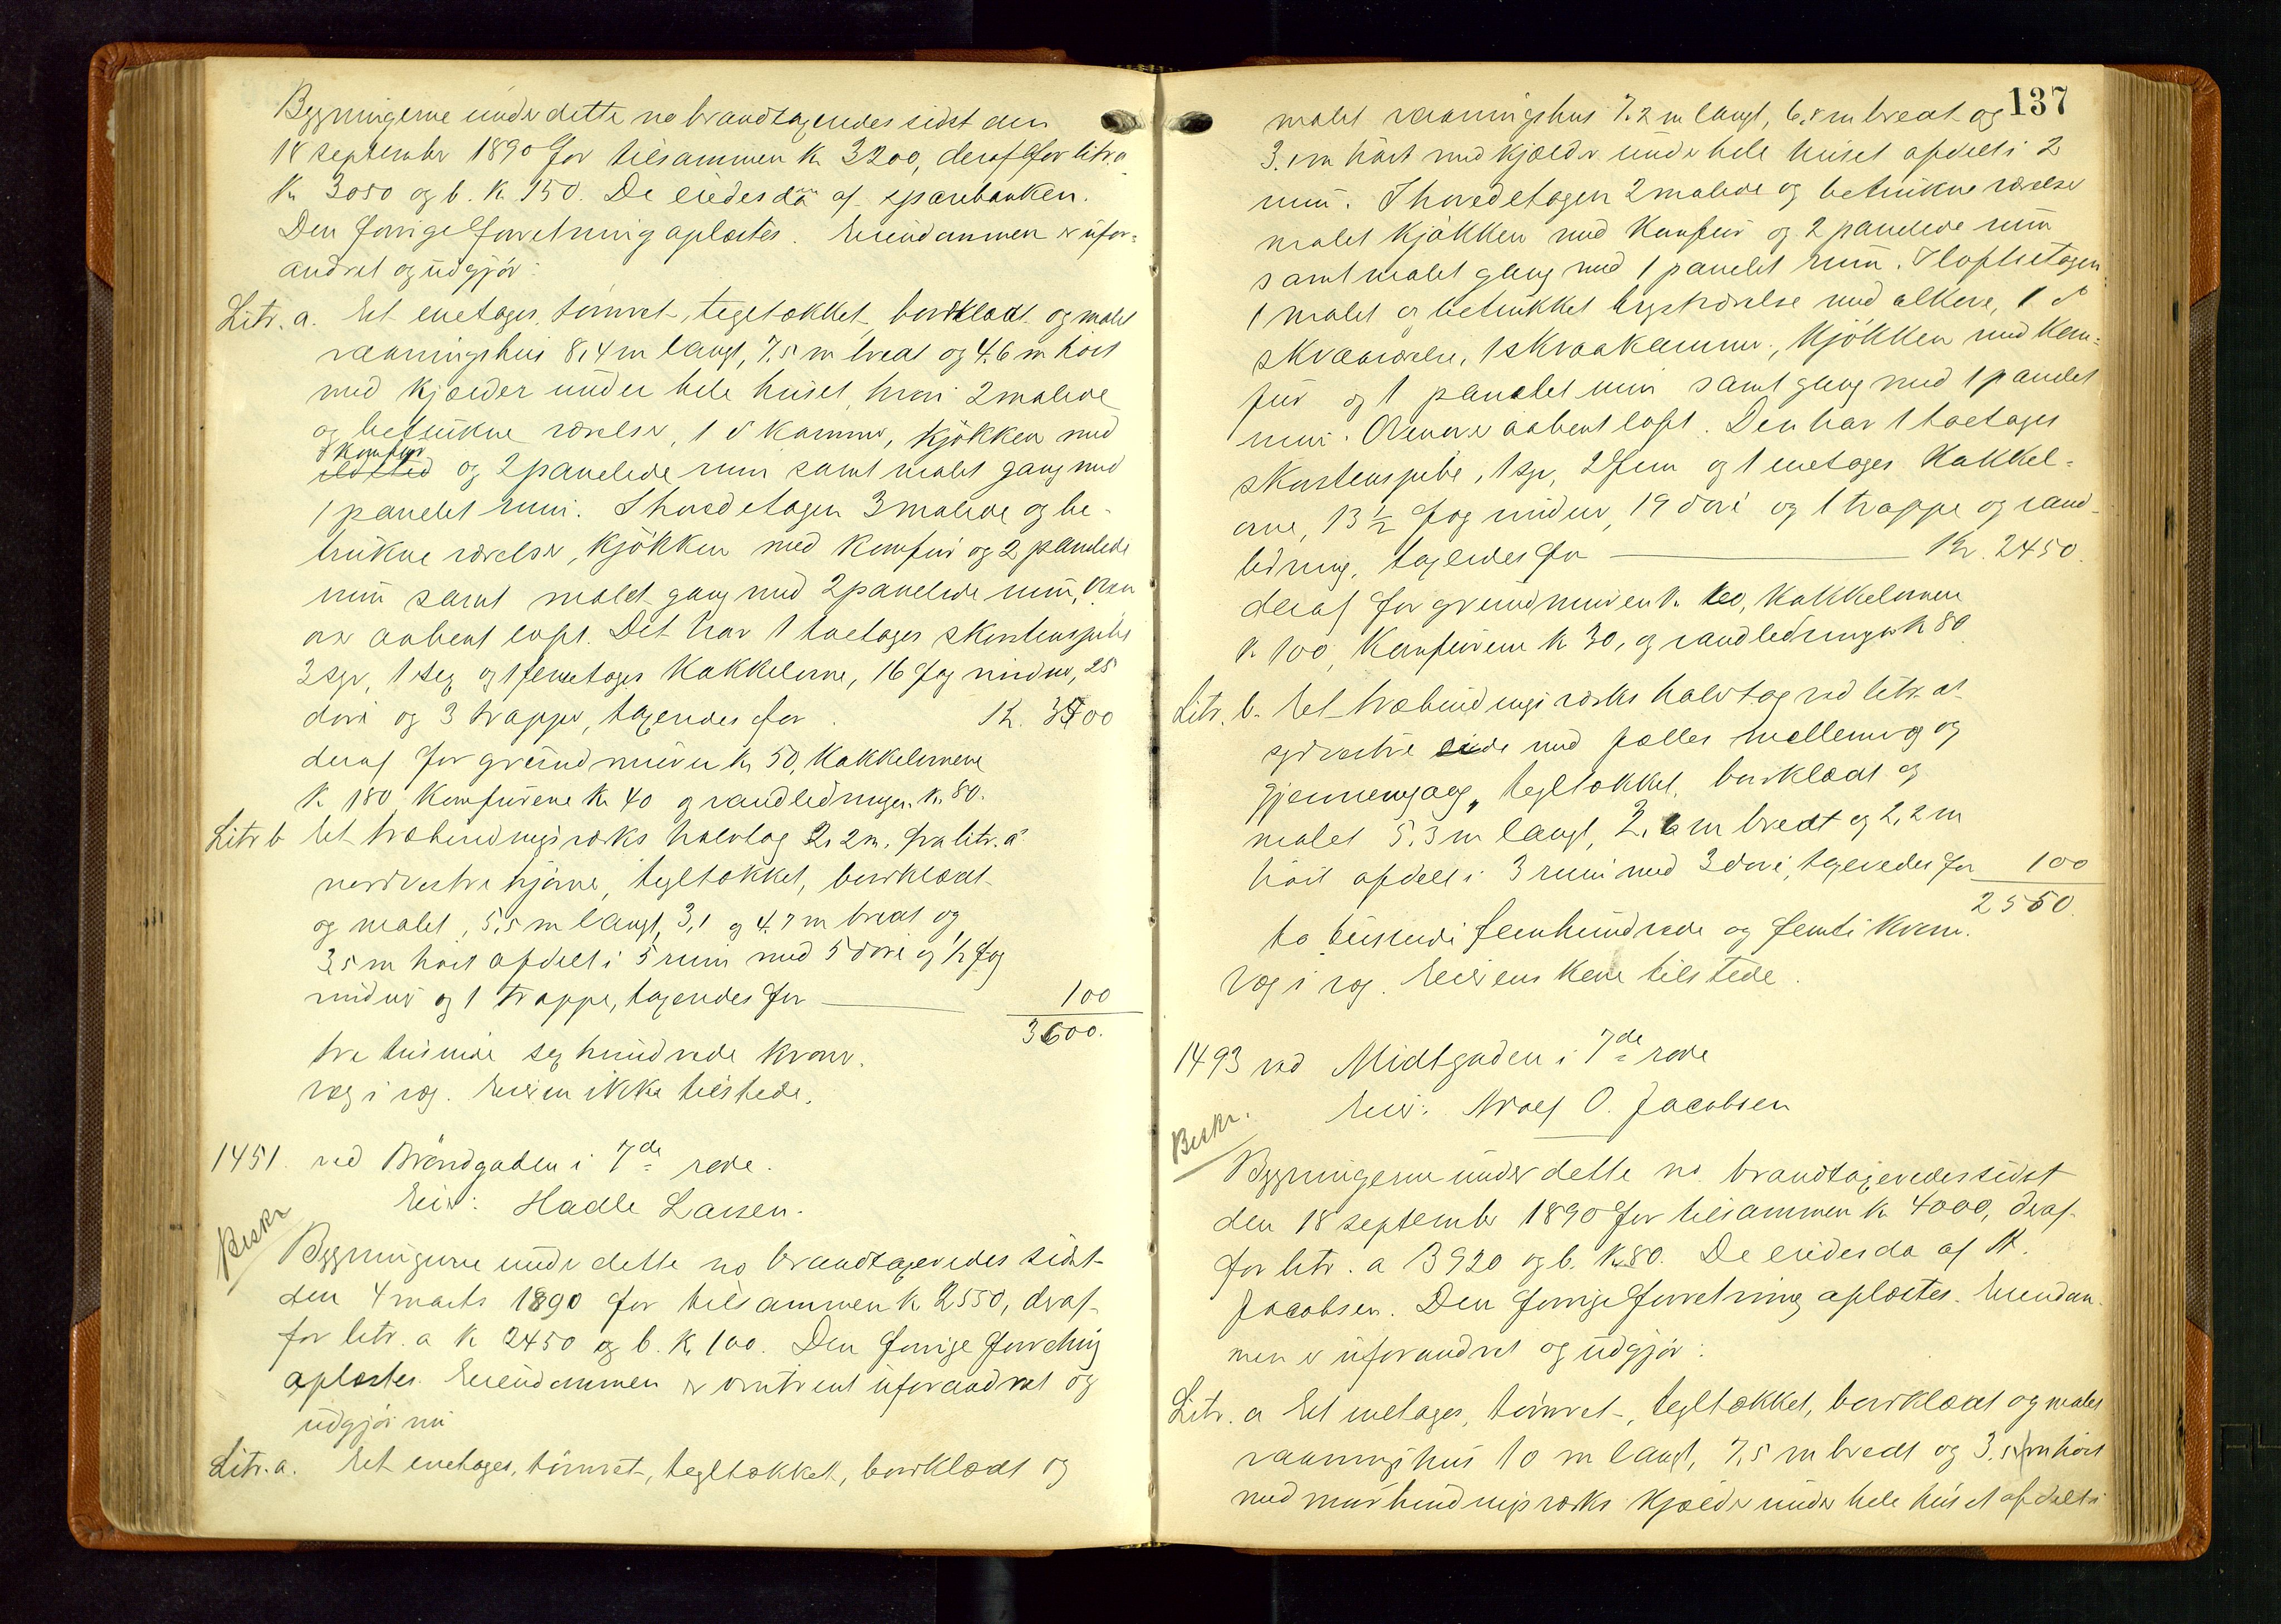 Bygningerne under dette no brandtaxeredes sidst den
18 september 1890 for tilsammen Kr 3200, deraf for litr. a
Kr 3050 og b. Kr 150. De eiedes da af sparebanken.
Den forrige forretning oplæstes. Eiendommen er ufor-
andret og udgjør:
Litr. a. Et enetages, tømret, tegltækket, bordklædt og malet
vaaningshus 8,4 m langt, 7,5 m bredt og 4,6 m høit
med kjælder under hele huset, hvori 2 malede
og betrukne værelser, 1 do kammer, kjøkken med
komfur
ildsted og 2 panelede rum samt malet gang med
1 panelet rum. I hovedetagen 3 malede og be-
trukne værelser, kjøkken med komfur og 2 panelede
rum samt malet gang med 2 panelede rum, Oven
over aabent loft. Det har 1 toetages skorstenspibe
3 syv, 1 sex og 1 femetages kakkelovne, 16 fag vinduer, 25
døre og 3 trapper, taxeredes for Kr. 3500
deraf for grundmuren Kr 50, kakkelovnene
Kr 180, komfurene Kr 40 og vandledningen Kr. 80.
Litr b Et træbindingsværks halvtag 2,2 m. fra litr. a's
nordvestre hjørne, tegltækket, bordklædt
og malet, 5,5 m langt, 3,1 og 4,7 m bredt og
3,5 m høit afdelt i 5 rum med 5 døre og ½ fag
vinduer og 1 trappe, taxeredes for 100
3600.
tre tusinde sex hundrede kroner.
Væg i væg. Eieren ikke tilstede.
1451. ved Brøndgaden i 7de rode.
Eier: Hadle Larsen.
Beskr
Bygningerne under dette no brandtaxeredes sidst
den 4 marts 1890 for tilsammen Kr 2550, deraf
for litr. a Kr 2450 og b. Kr. 100. Den forrige forretning
oplæstes. Eiendommen er omtrent uforandret og
udgjør nu
Litr. a. Et enetages, tømret, tegltækket, bordklædt og
137
malet vaaningshus 7.2 m langt, 6,8 m bredt og
3.1 m høit med kjælder under hele huset afdelt i 2
rum. I hovedetagen 2 malede og betrukne værelser
malet kjøkken med komfur og 2 panelede rum
samt malet gang med 1 panelet rum. I loftsetagen
1 malet og betrukket kvistværelse med alkove, 1 do
skraaværelse, 1 skraakammer, kjøkken med kom-
fur og 1 panelet rum samt gang med 1 panelet
rum. Ovenover aabent loft. Den har 1 toetages
skorstenspibe, 1 syv, 2 fem og 1 enetages kakkel-
ovne, 13 ½ fag vinduer, 19 døre og 1 trappe og vand-
ledning, taxeredes for Kr. 2450.
deraf for grundmuren Kr. 60, kakkelovnene
Kr 100, komfurene Kr 30, og vandledningen Kr 80
Litr. b. Et træbindingsværks halvtag ved litr. a's
sydvestre side med fælles mellemvæg og
gjennemgang, tegltækket, bordklædt og
malet 5.3 m langt, 2,6 m bredt og 2,2 m
høit afdelt i 3 rum med 3 døre, taxeredes for 100
2550.
to tusinde femhundrede og femti kroner.
Væg i væg. Eierens kone tilstede.
1493 ved Midtgaden i 7de rode
Eier: Adolf O. Jacobsen
Beskr.
Bygningerne under dette no. brandtaxeredes sidst
den 18 september 1890 for tilsammen Kr 4000, deraf
for litr. a 3920 og b. Kr 80. De eiedes da af M.
Jacobsen. Den forrige forretning oplæstes. Eiendom-
men er uforandret og udgjør:
Litr. a Et enetages, tømret, tegltækket, bordklædt og malet
vaaningshus 10 m langt, 7,5 m bredt og 3.5 m høit
med murbindingsværks kjælder under hele huset afdelt i